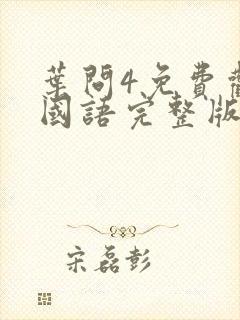 葉問4免費
國語完整版
宋磊彭